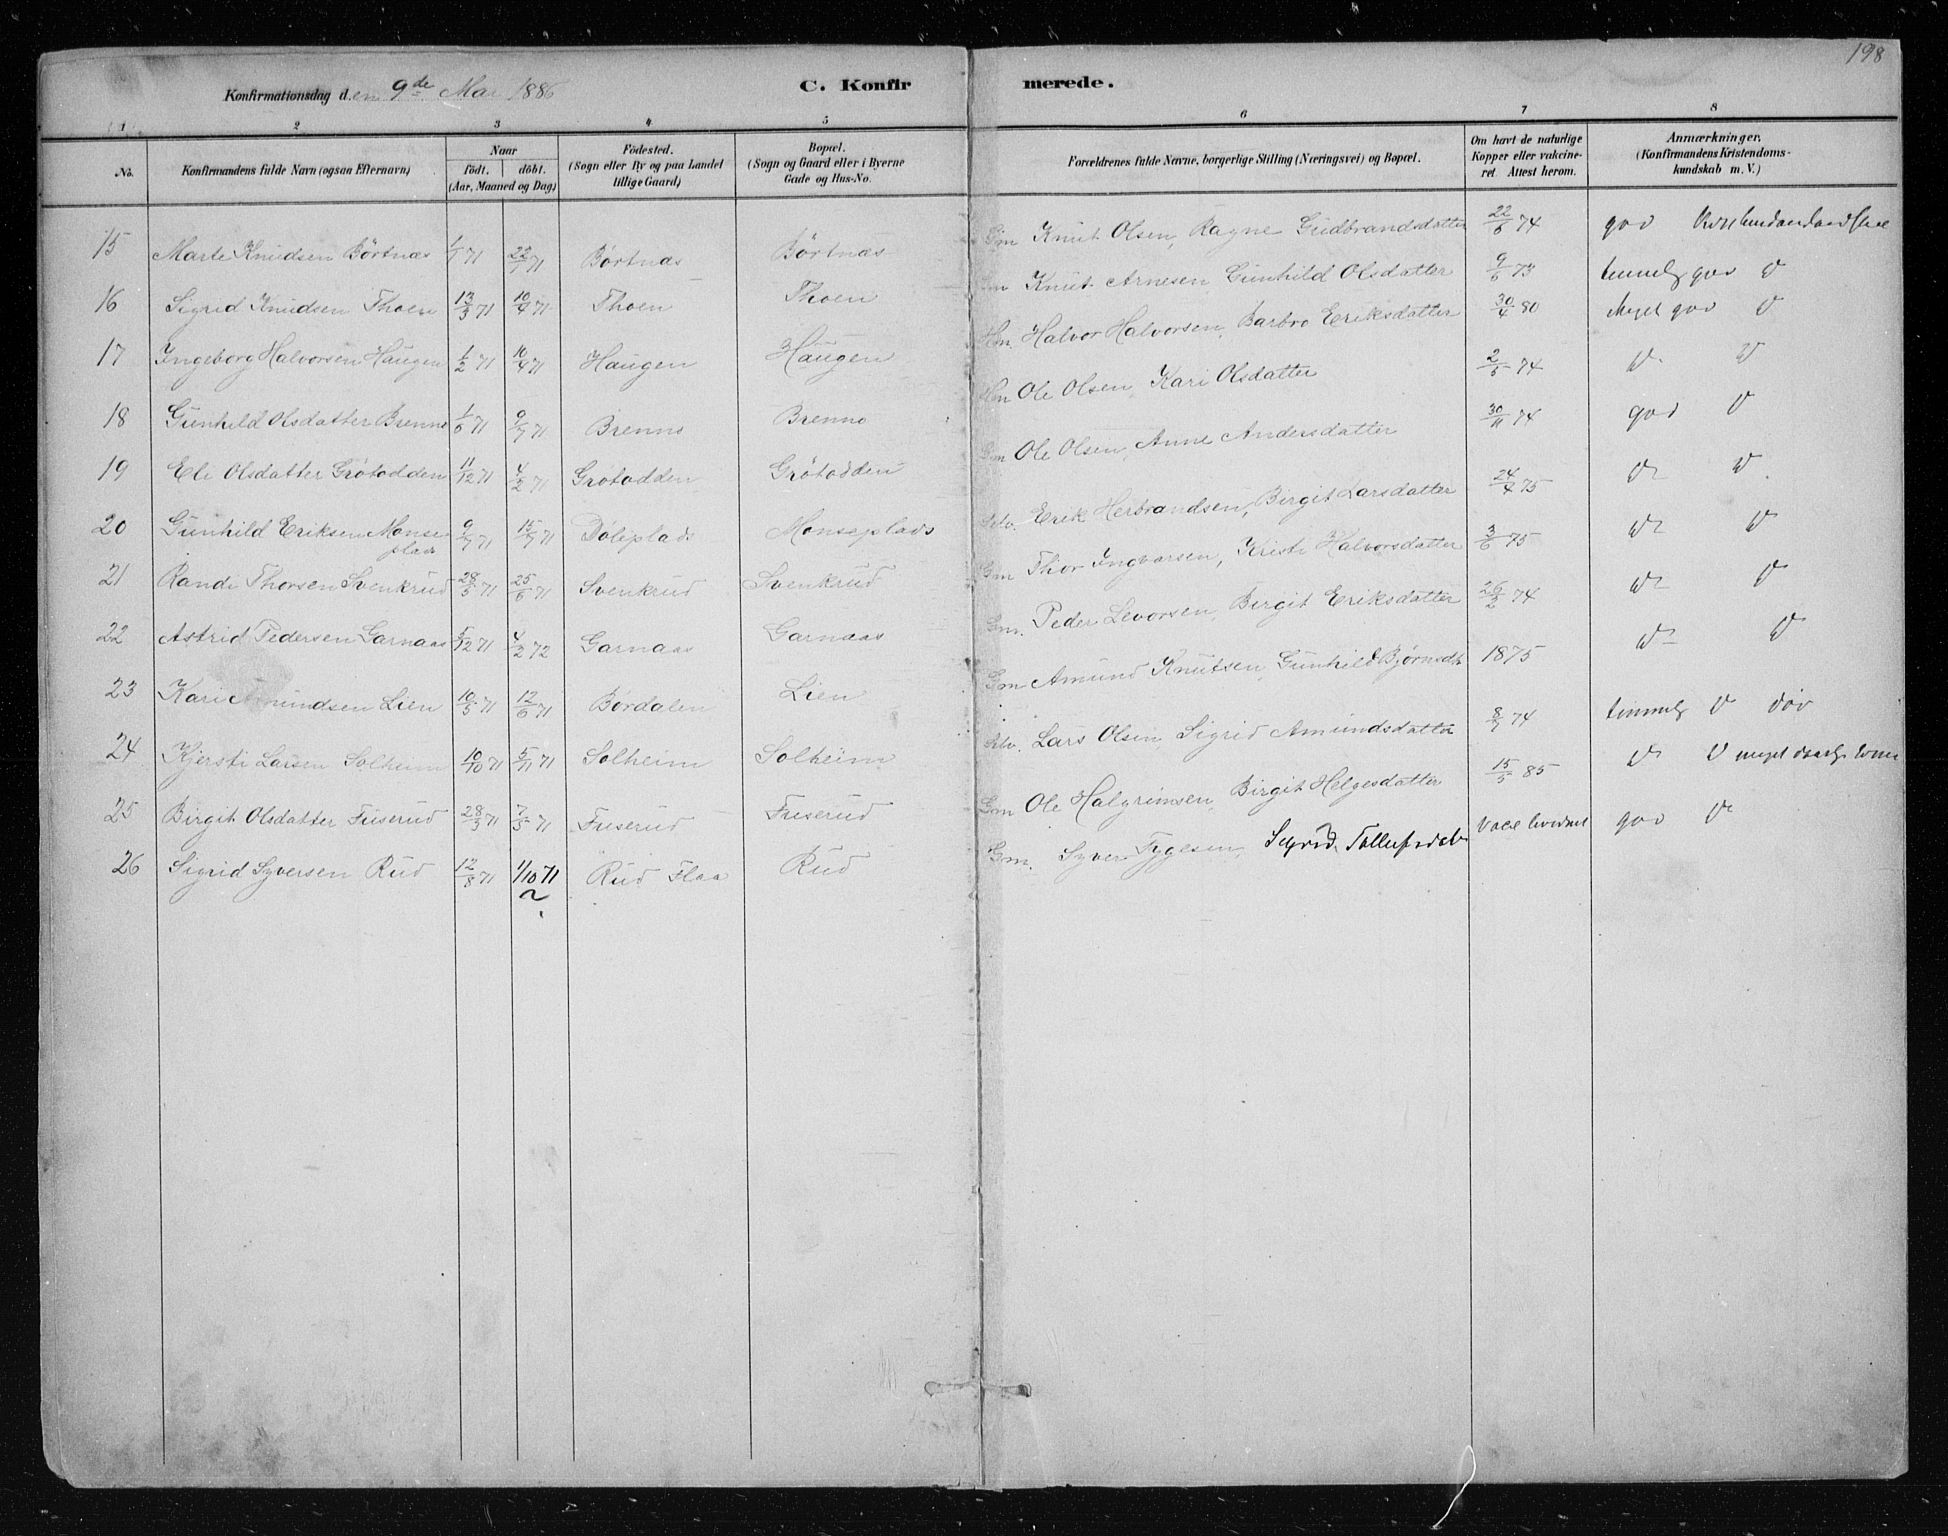 198
Konfirmationsdag den 9de Mai 1886
C. Konfirmerede.
1 2 3 4 5 6 7 8
No. Konfirmandens fulde Navn (ogsaa Efternavn) Naar födt. döbt. (Aar, Maaned og Dag) Födested. (Sogn eller By og paa Landet tillige Gaard) Bopæl. (Sogn og Gaard eller i Byerne Gade og Hus-No. Forældrenes fulde Navne, borgerlige Stilling (Næringsvei) og Bopæl. Om havt de naturlige Kopper eller vakcineret. Attest herom. Anmærkninger. (Konfirmandens Kristendomskundskab m. V.)
15 Marte Knudsen Börtnæs 1/1 71 22/1 71 Börtnæs Börtnæs Gm Knut Olsen, Ragne Gudbrandsdatter 22/6 74 god
16 Sigrid Knudsen Thoen 13/3 71 10/4 71 Thoen Thoen Gm Knut Arnesen Gunhild Olsdatter 9/6 73 temmelig god
17 Ingeborg Halvorsen Haugen 1/2 71 10/4 71 Haugen Haugen Hm. Halvor Halvorsen, Barbro Eriksdatter 30/4 80 Meget god
18 Gunhild Olsdatter Brenno 1/6 71 9/7 71 Brenno Brenno Hm Ole Olsen, Kari Olsdatter 2/5 74
19 Eli Olsdatter Grötodden 11/12 71 4/2 71 Grötodden Grötodden Gm Ole Olsen, Anne Andersdatter 30/11 74 god
20 Gunhild Eriksen Monseplads 9/7 71 15/7 71 Döleplads Monseplads Selv. Erik Herbrandsen, Birgit Larsdatter 24/4 75
21 Randi Thorsen Svenkrud 28/5 71 25/6 71 Svenkrud Svenkrud Gm Thor Ingvarsen, Kristi Halvorsdatter 3/6 75
22 Astrid Pedersen Garnaas 5/12 71 4/2 72 Garnaas Garnaas Gm. Peder Levorsen, Birgit Eriksdatter 26/2 74
23 Kari Amundsen Lien 10/5 71 12/6 71 Bördalen Lien Gm Amund Knutsen, Gunhild Björnsdt 1875
24 Kjersti Larsen Solheim 10/10 71 5/11 71 Solheim Solheim Selv. Lars Olsen, Sigrid Amundsdatter 8/7 74 temmelig döv
25 Birgit Olsdatter Fuserud 28/3 71 7/5 71 Fuserud Fuserud Gm Ole Halgrimsen, Birgit Helgesdatter 15/5 85 meget daarlig
26 Sigrid Syversen Rud 12/8 71 1/10 71 Rud Flaa Rud Gm. Syver Tygesen, Sigrid Tollefsdatr god